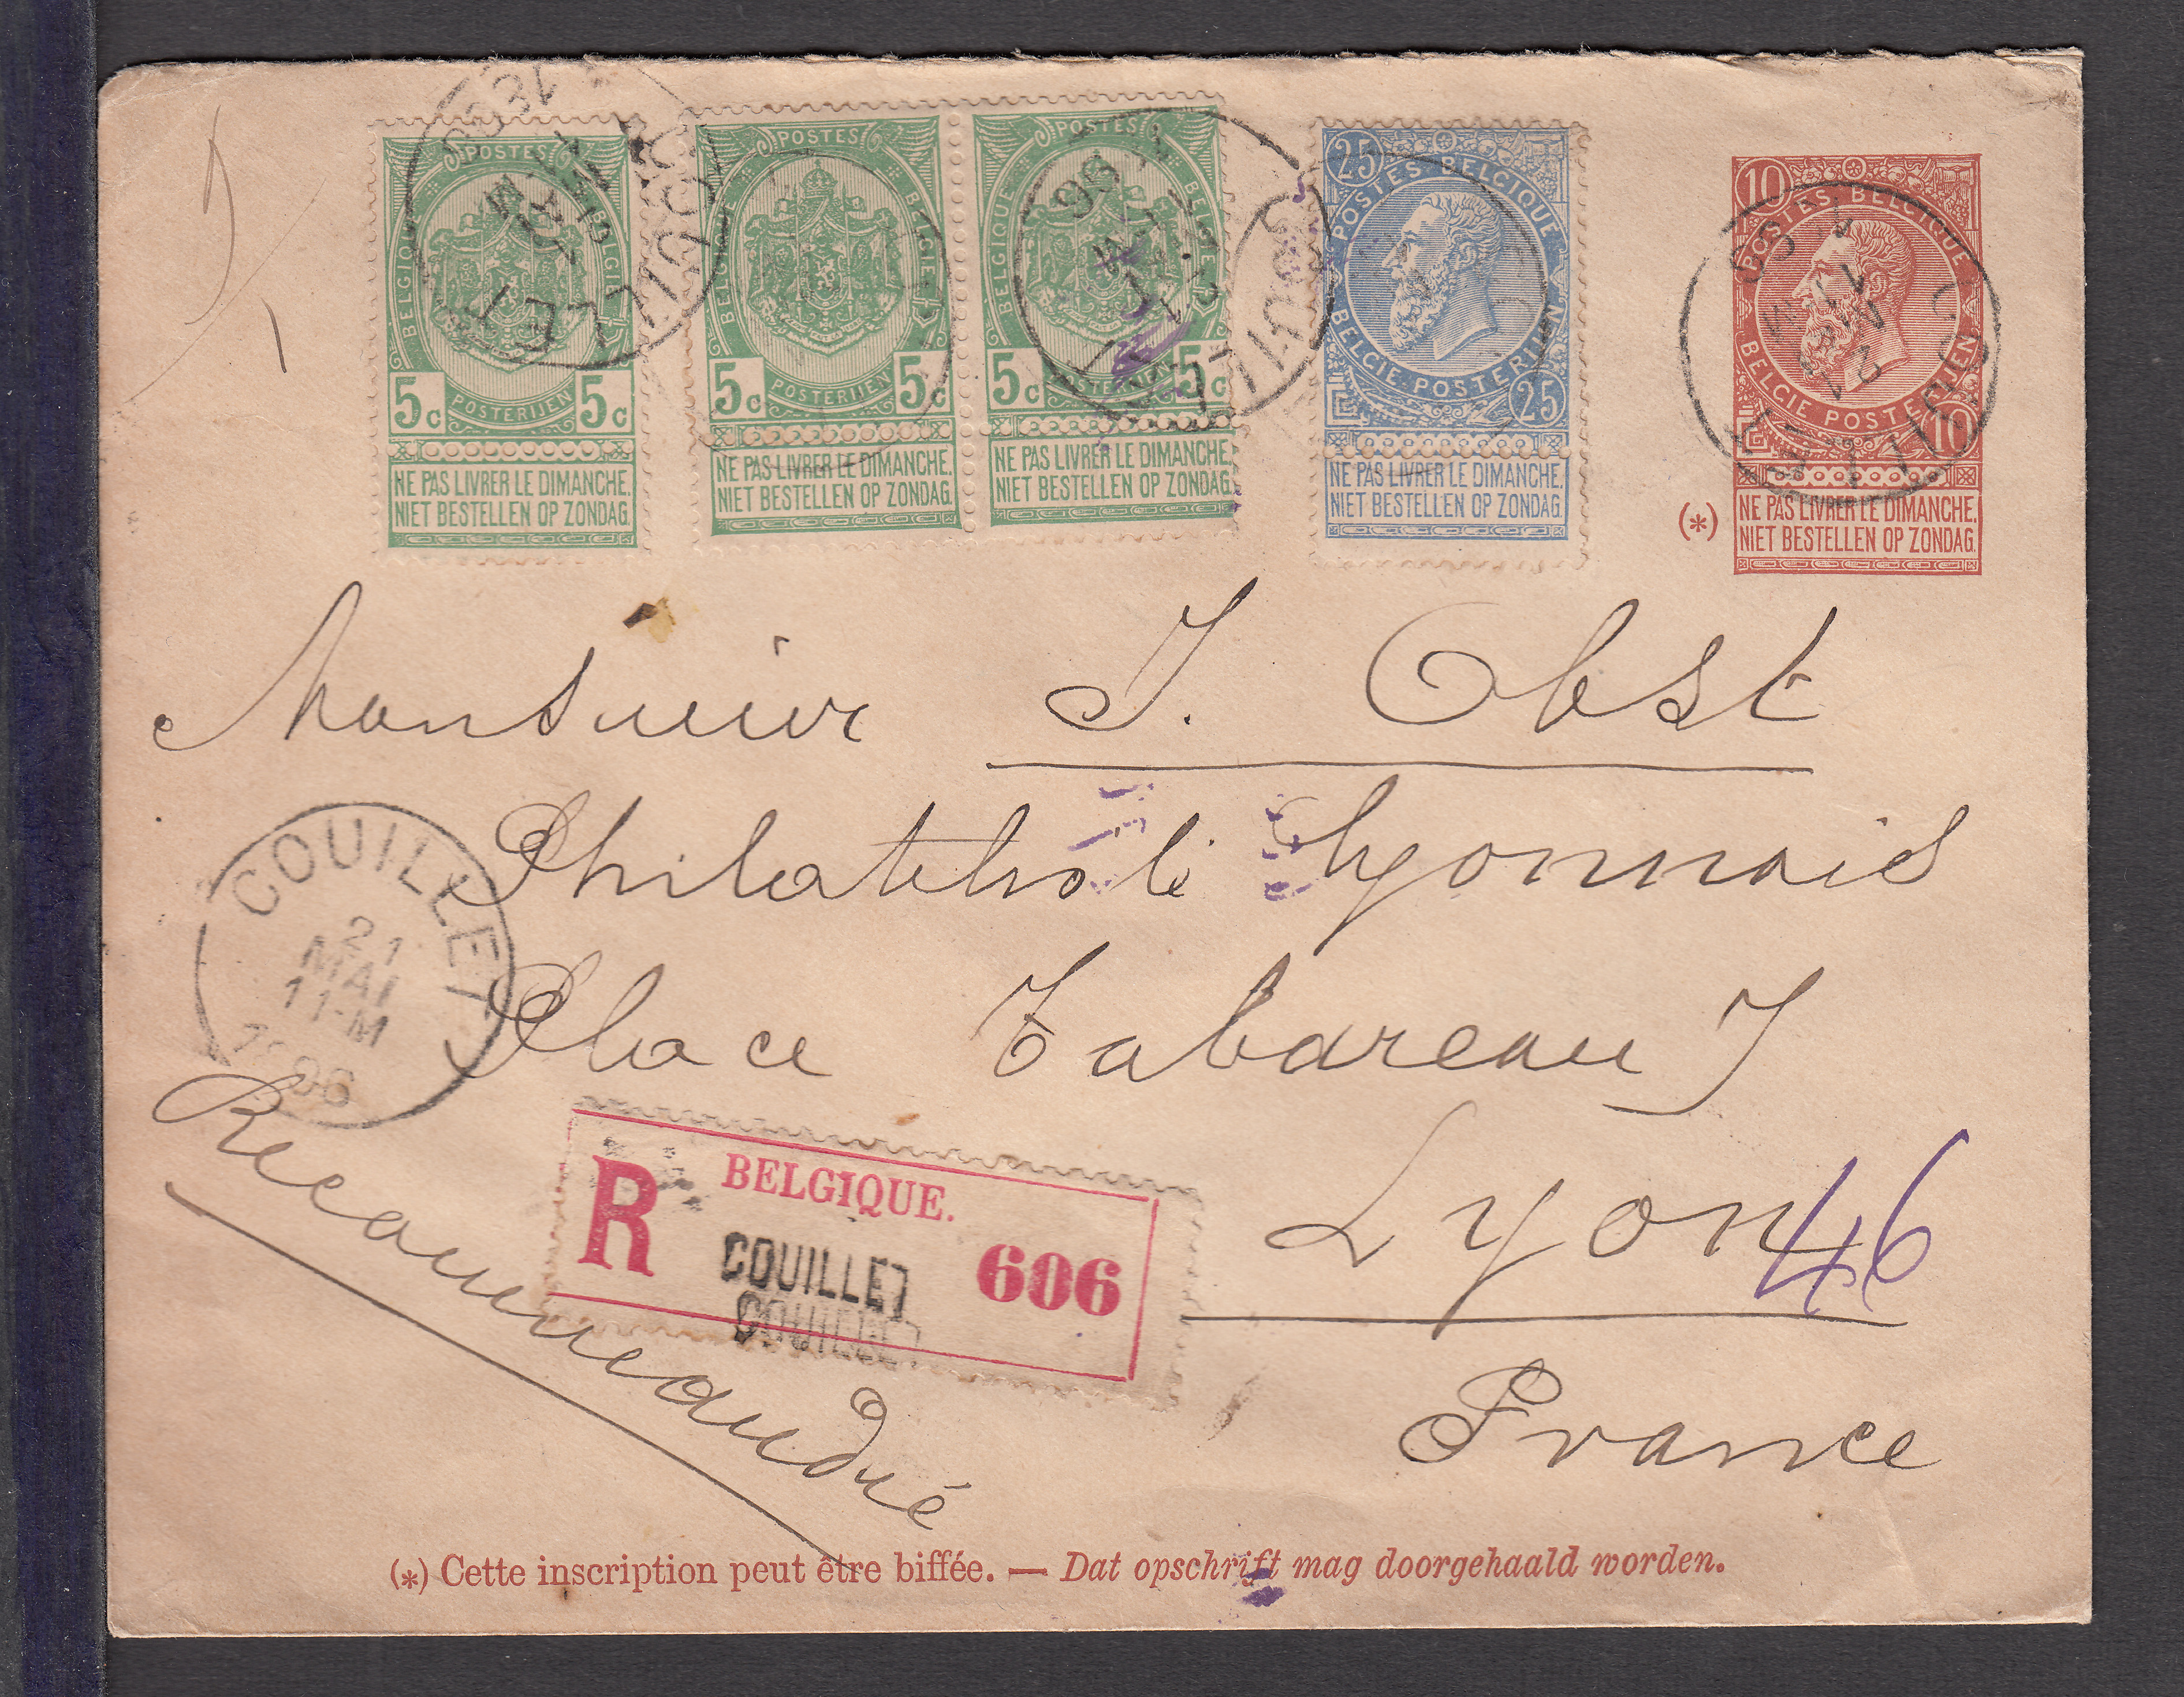 POSTES
BELGIQUE BELGIE
5c 5c
POSTERIJEN
NE PAS LIVRER LE DIMANCHE.
NIET BESTELLEN OP ZONDAG.
COUILLET
POSTES
BELGIQUE BELGIE
5c 5c
POSTERIJEN
NE PAS LIVRER LE DIMANCHE.
NIET BESTELLEN OP ZONDAG.
POSTES
BELGIQUE BELGIE
5c 5c
POSTERIJEN
NE PAS LIVRER LE DIMANCHE.
NIET BESTELLEN OP ZONDAG.
COUILLET
25
POSTES BELGIQUE
BELGIE POSTERIJEN
25
NE PAS LIVRER LE DIMANCHE.
NIET BESTELLEN OP ZONDAG.
10
POSTES BELGIQUE
BELGIE POSTERIJEN
10
NE PAS LIVRER LE DIMANCHE.
(*) NIET BESTELLEN OP ZONDAG.
COUILLET
Monsieur J. Obst
Lyonnais
Place Tabareau
Lyon
46
France
COUILLET
21
MAI
11-M
Recommandé
R BELGIQUE.
COUILLET 606
COUILLET
(*) Cette inscription peut être biffée. — Dat opschrift mag doorgehaald worden.